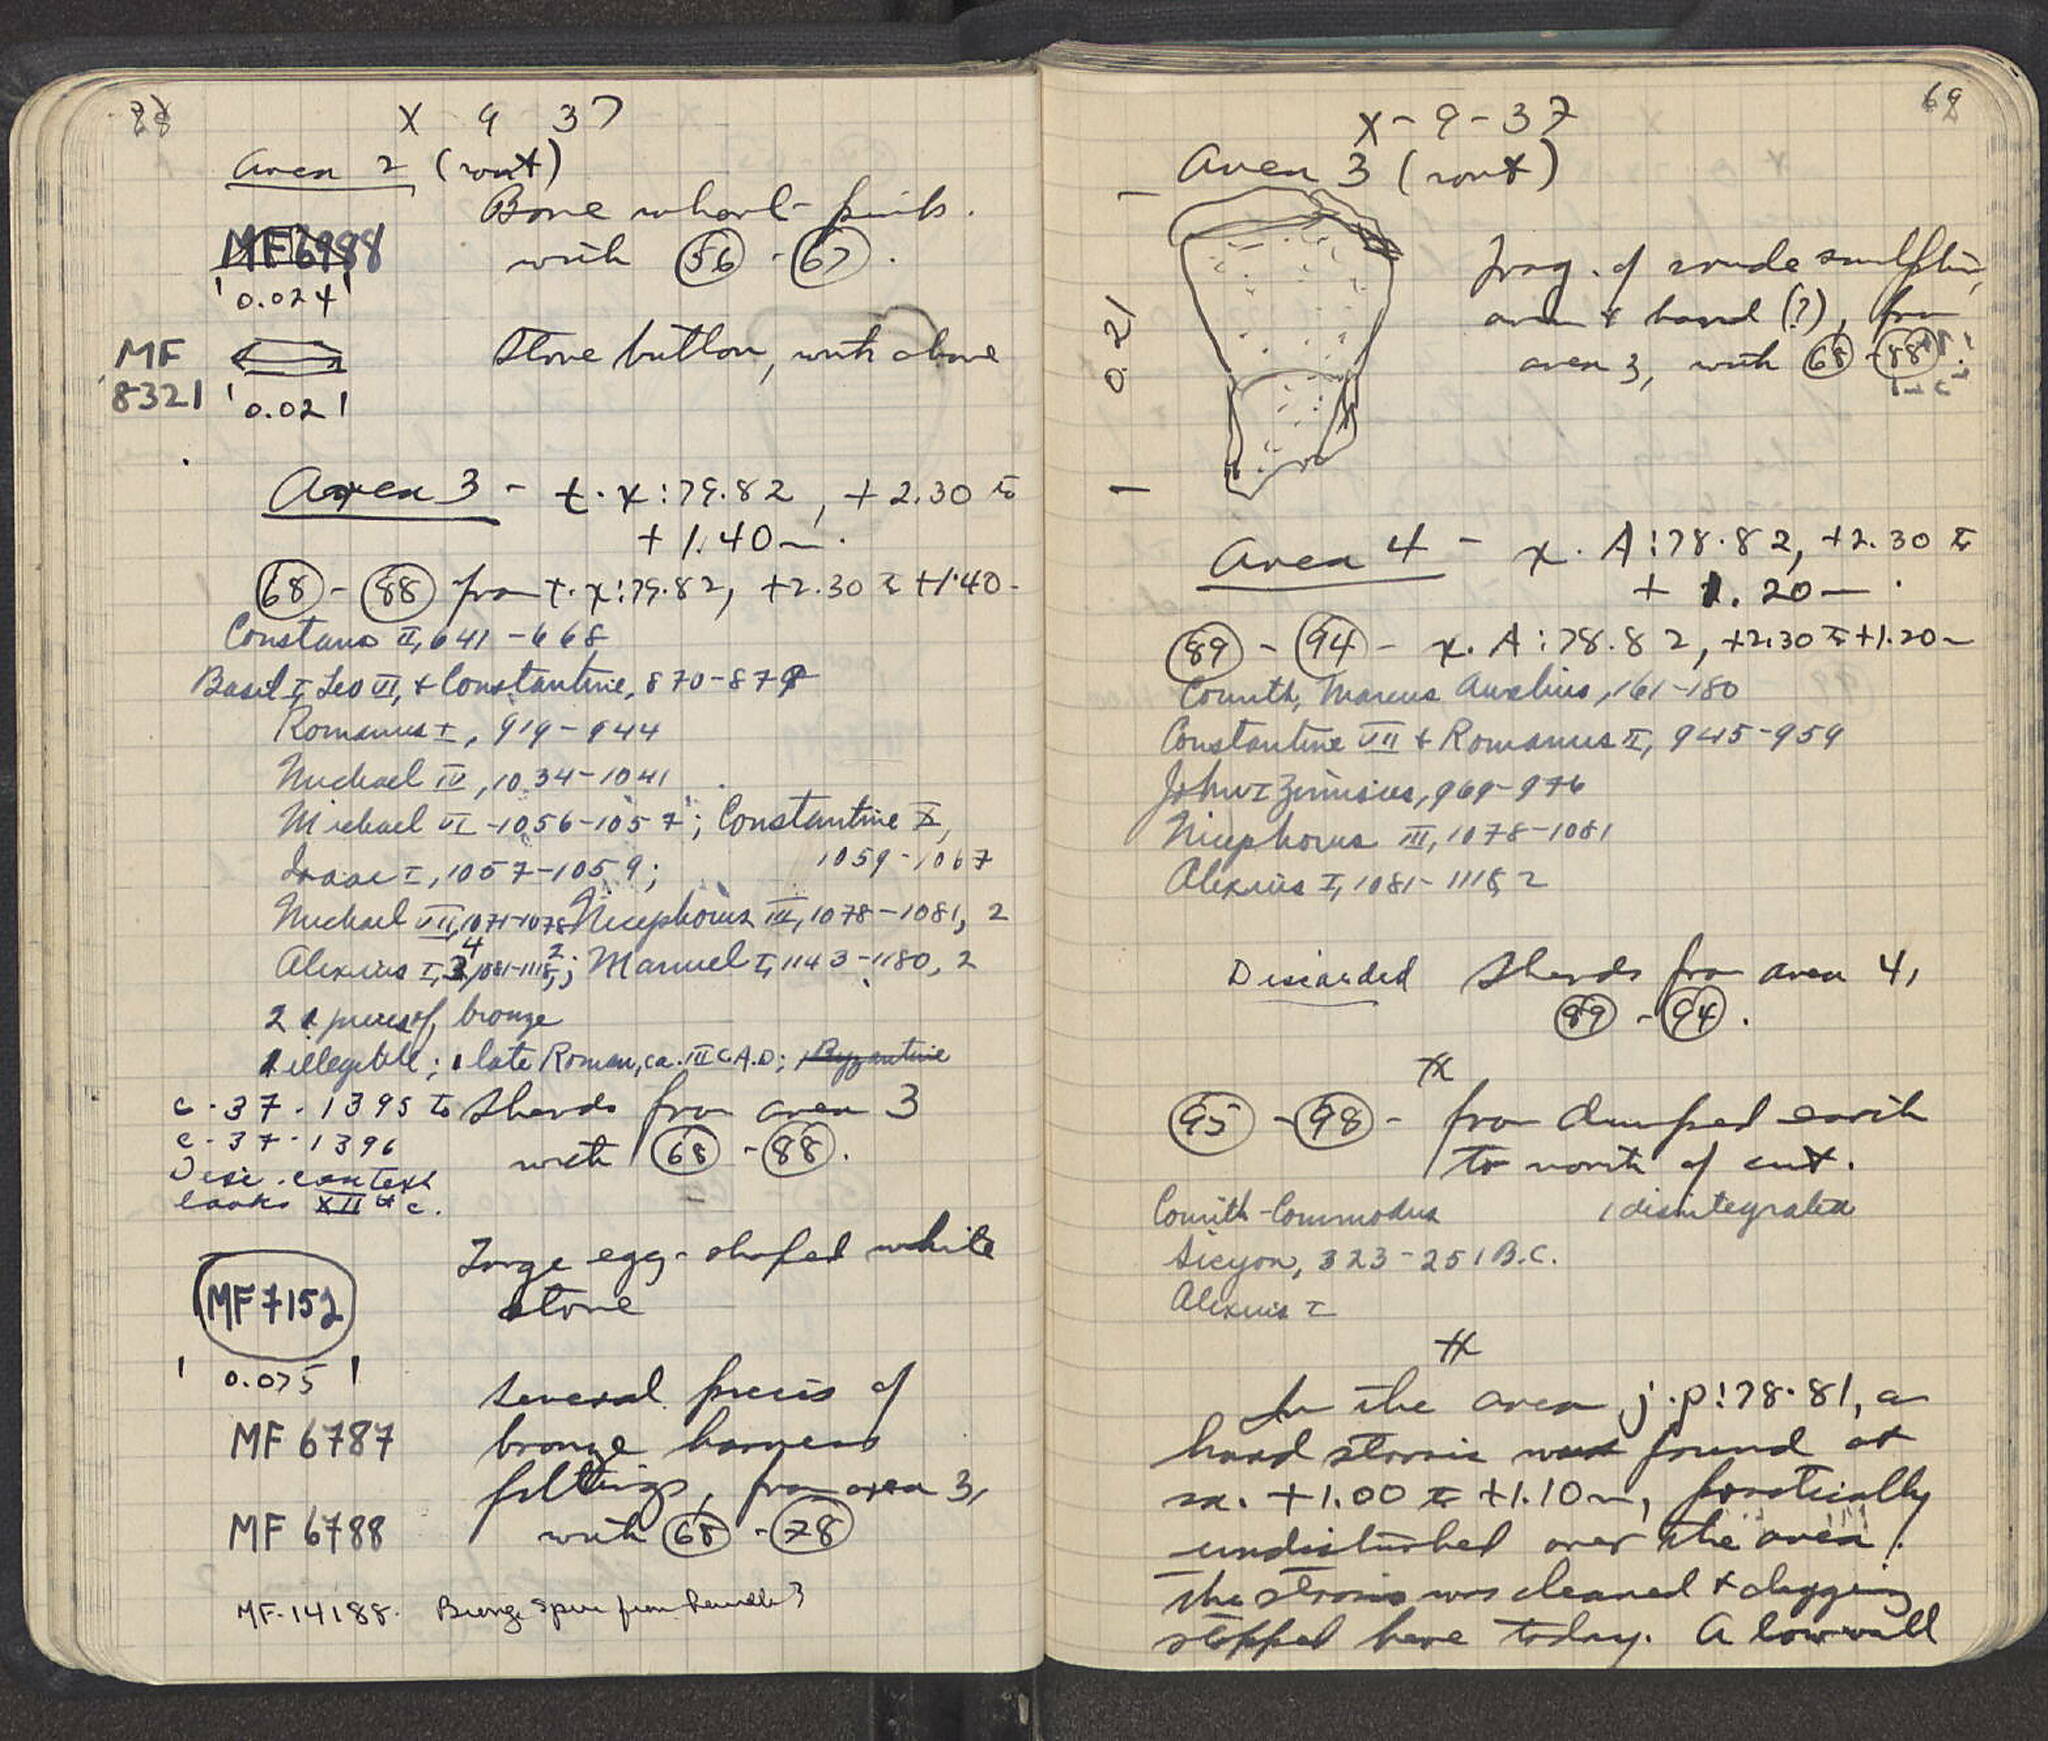 X 9 37
Area 2 (cont)
Bone whorl - pink.
MF 6988
with (56) - (67).
0.024
MF
8321
Stone button, with above
0.021
Area 3 - t.x:79.82, +2.30 to
+1.40m.
(68) - (88) from t.x:79.82, +2.30 to +1.40-
Constans II, 641-668
Basil I, Leo VI, + Constantine, 870-879
Romanus I, 919-944
Michael IV, 1034-1041
Michael VI - 1056-1057; Constantine X,
Isaac I, 1057-1059; 1059-1067
Michael VII, 1071-1078 Nicephorus III, 1078-1081, 2
Alexius I, 1081-1118, 2; Manuel I, 1143-1180, 2
2 pieces of bronze
1 illegible; 1 late Roman, ca. III C A.D; 1 Byzantine
C-37-1395 to
C-37-1396
Disc. context
looks XII th c.
Sherds from area 3
with (68) - (88).
MF 7152
0.075
Large egg-shaped white
stone
MF 6787
MF 6788
Several pieces of
bronze harness
fittings, from area 3,
with (68) - (78)
MF-14188. Bronze from handle?
69
X-9-37
Area 3 (cont)
0.21
Frag. of crude sculpture,
arm & hand (?), from
area 3, with (68) - (88)
Area 4 - x.A:78.82, +2.30 to
+1.20m.
(89) - (94) - x.A:78.82, +2.30 to +1.20m
Corinth, Marcus Aurelius, 161-180
Constantine VII + Romanus II, 945-959
John I Zimisces, 969-976
Nicephorus III, 1078-1081
Alexius I, 1081-1118, 2
Discarded Sherds from area 4,
(89) - (94).
(95) - (98) - from dumped earth
to north of cut.
Corinth - Commodus 1 disintegrated
Sicyon, 323-251 B.C.
Alexius I
In the area j.p:78.81, a
hard stosis was found at
ca. +1.00 to +1.10m, practically
undisturbed over the area.
The stosis was cleaned & digging
stopped here today. A low wall